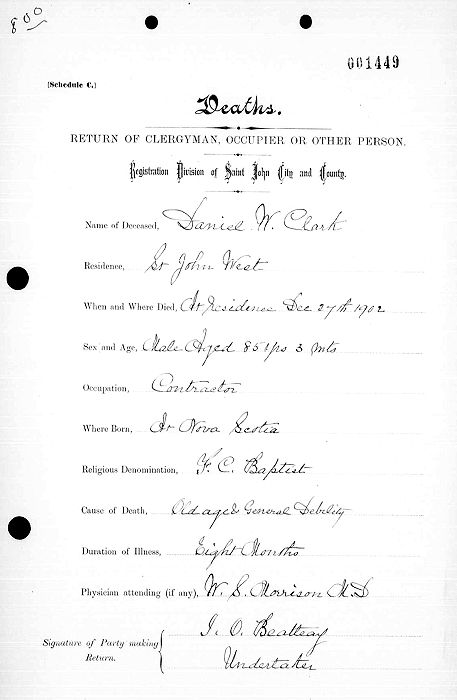 800
001449
(Schedule C.)
Deaths.
RETURN OF CLERGYMAN, OCCUPIER OR OTHER PERSON.
Registration Division of Saint John City and County.
Name of Deceased, Daniel W. Clark
Residence, St John West
When and Where Died, At residence Dec 27th 1902
Sex and Age, Male Aged 85 yrs 3 mts
Occupation, Contractor
Where Born, At Nova Scotia
Religious Denomination, F. C. Baptist
Cause of Death, Old age & General Debility
Duration of Illness, Eight Months
Physician attending (if any), W. S. Morrison M.D
Signature of Party making Return. I. O. Beatteay
Undertaker